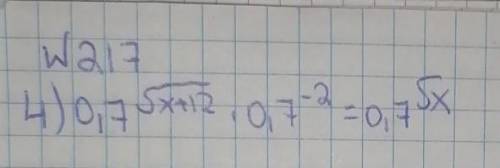 №217
4) 0,7^√(x+12) · 0,7^-2 = 0,7^√x